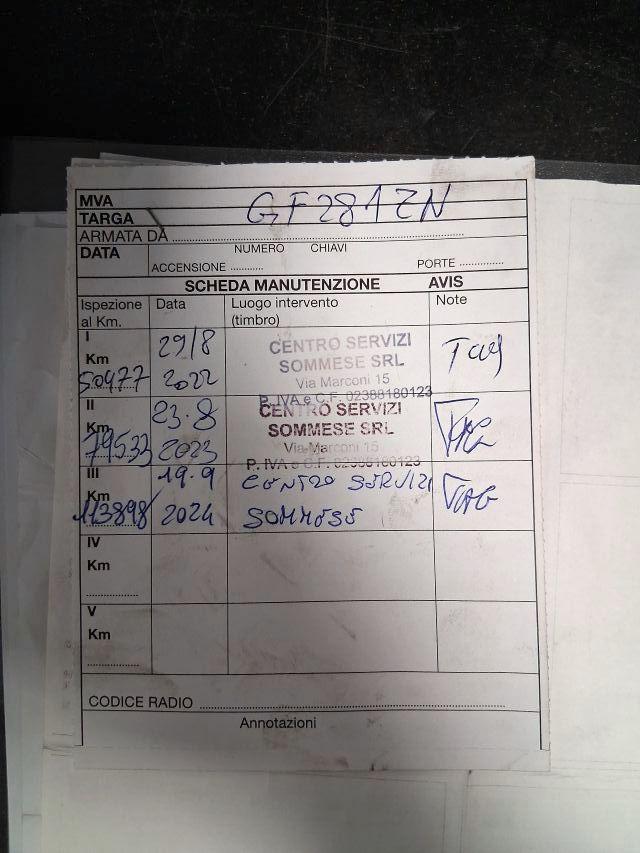 MVA
TARGA GF281ZN
ARMATA DA
DATA NUMERO CHIAVI
ACCENSIONE PORTE
SCHEDA MANUTENZIONE AVIS
Ispezione al Km. Data Luogo intervento (timbro) Note
I
Km
50477
29/8
2022
CENTRO SERVIZI
SOMMESE SRL
Via Marconi 15
P. IVA e C.F. 02388180123
II
Km
79533
23.8
2023
CENTRO SERVIZI
SOMMESE SRL
Via Marconi 15
P. IVA e C.F. 02388180123
III
Km
113898
19.9
2024
CENTRO SERVIZI
SOMMESE
IV
Km
V
Km
CODICE RADIO
Annotazioni